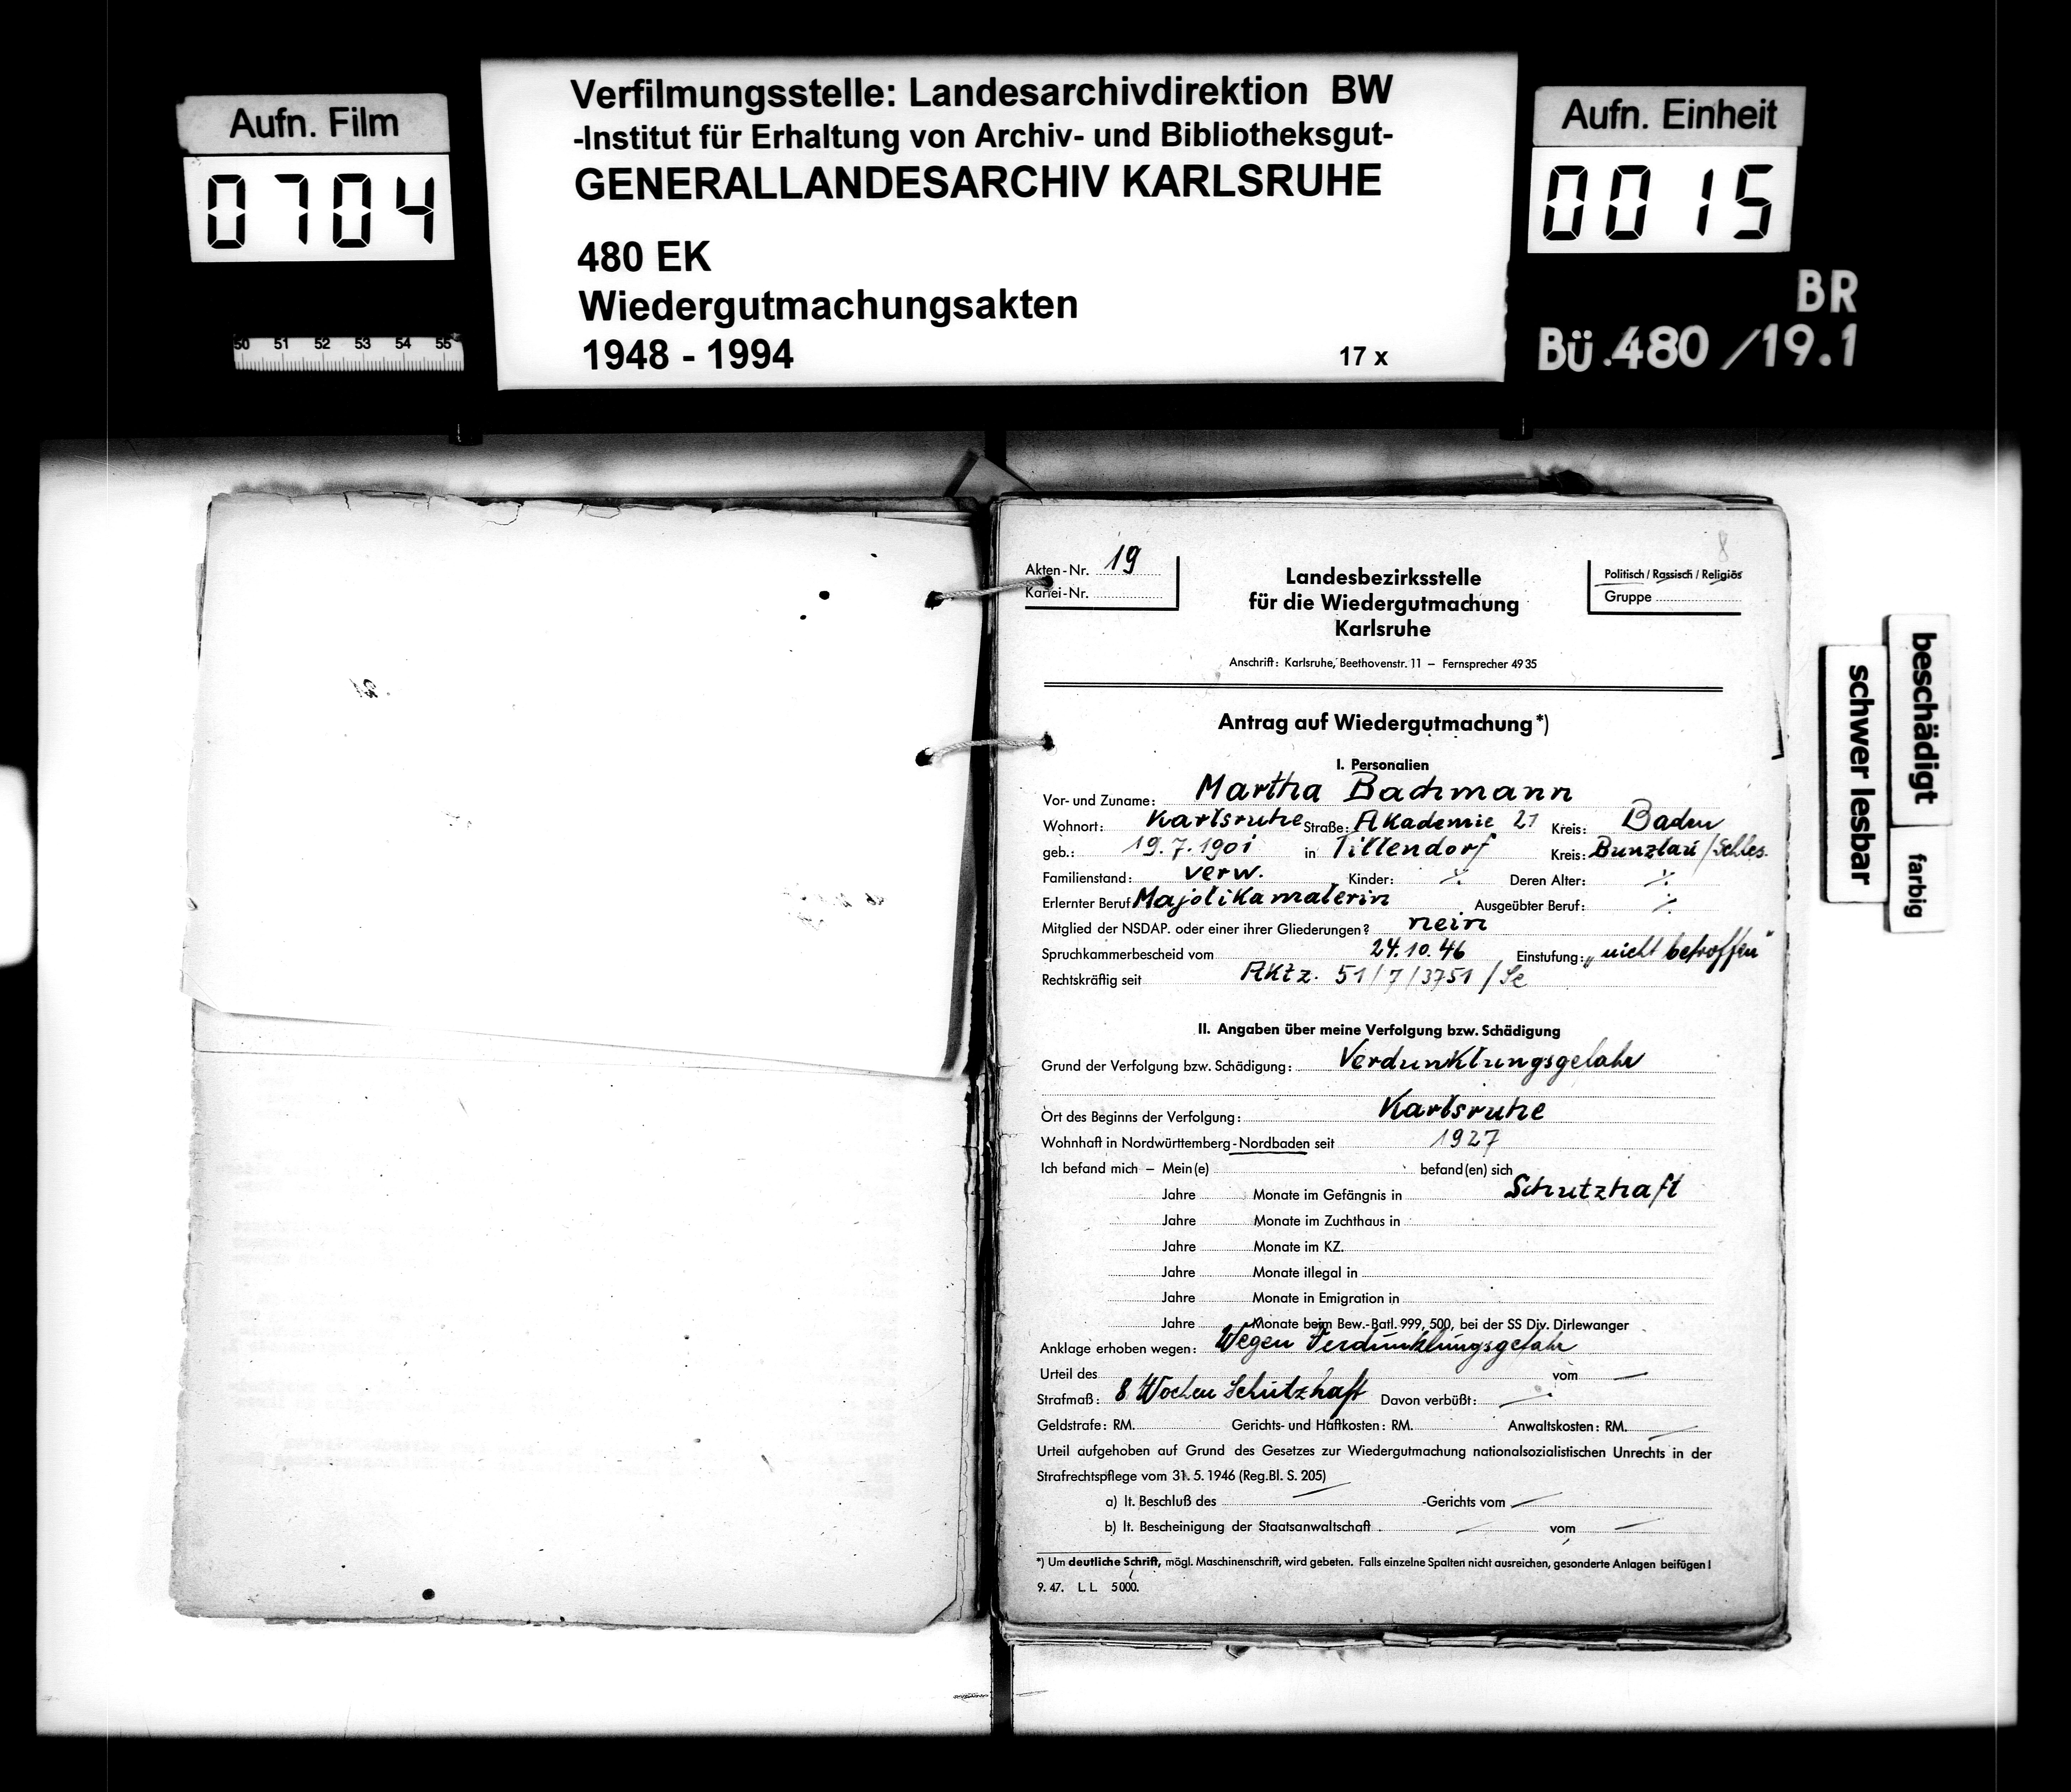 Aufn. Film
0704
Verfilmungsstelle: Landesarchivdirektion BW
-Institut für Erhaltung von Archiv- und Bibliotheksgut-
GENERALLANDESARCHIV KARLSRUHE
480 EK
Wiedergutmachungsakten
1948 - 1994
17 x
Aufn. Einheit
0015
BR
Bü.480/19.1
50 51 52 53 54 55
beschädigt
schwer lesbar
farbig
8
Akten-Nr. 19
Kartei-Nr.
Landesbezirksstelle
für die Wiedergutmachung
Karlsruhe
Politisch / Rassisch / Religiös
Gruppe
Anschrift: Karlsruhe, Beethovenstr. 11 – Fernsprecher 4935
Antrag auf Wiedergutmachung*)
I. Personalien
Vor- und Zuname: Martha Bachmann
Wohnort: Karlsruhe Straße: Akademie 21 Kreis: Baden
geb.: 19.7.1901 in Tillendorf Kreis: Bunzlau/Schles.
Familienstand: verw. Kinder: ./. Deren Alter: ./.
Erlernter Beruf Majolikamalerin Ausgeübter Beruf: ./.
Mitglied der NSDAP. oder einer ihrer Gliederungen? nein
Spruchkammerbescheid vom 24.10.46 Einstufung: „nicht betroffen"
Rechtskräftig seit Aktz. 51/7/3751/Se
II. Angaben über meine Verfolgung bzw. Schädigung
Grund der Verfolgung bzw. Schädigung: Verdunklungsgefahr
Ort des Beginns der Verfolgung: Karlsruhe
Wohnhaft in Nordwürttemberg-Nordbaden seit 1927
Ich befand mich – Mein(e) befand(en) sich
Jahre Monate im Gefängnis in Schutzhaft
Jahre Monate im Zuchthaus in
Jahre Monate im KZ.
Jahre Monate illegal in
Jahre Monate in Emigration in
Jahre Monate beim Bew.-Batl. 999, 500, bei der SS Div. Dirlewanger
Anklage erhoben wegen: Wegen Verdunklungsgefahr
Urteil des vom —
Strafmaß: 8 Wochen Schutzhaft Davon verbüßt: —
Geldstrafe: RM. Gerichts- und Haftkosten: RM. Anwaltskosten: RM. —
Urteil aufgehoben auf Grund des Gesetzes zur Wiedergutmachung nationalsozialistischen Unrechts in der
Strafrechtspflege vom 31.5.1946 (Reg.Bl. S. 205)
a) lt. Beschluß des — -Gerichts vom —
b) lt. Bescheinigung der Staatsanwaltschaft — vom —
*) Um deutliche Schrift, mögl. Maschinenschrift, wird gebeten. Falls einzelne Spalten nicht ausreichen, gesonderte Anlagen beifügen!
9. 47. L.L. 5000.